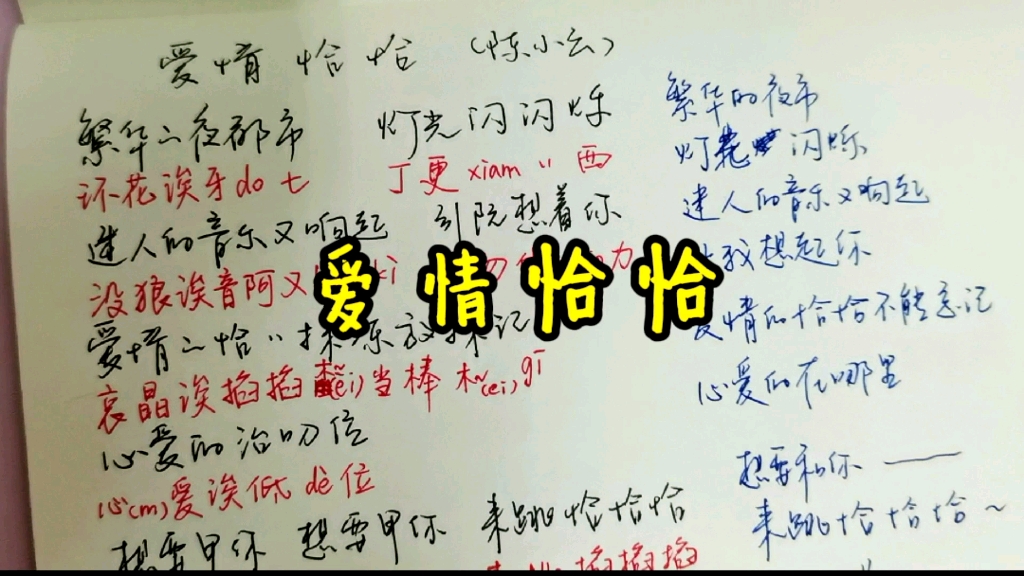 爱情恰恰（陈小云）
繁华ㄟ夜都市 灯光闪闪烁
环花诶牙do七 丁更xiam〃西
迷人的音乐又响起 引阮想着你
没狼诶音阿又
爱情ㄟ恰〃
哀晶诶掐掐 当棒 gī
心爱的治叨位
心(m)爱诶低dè位
想要甲你 想要甲你 来跳恰恰恰
掐掐掐
繁华的夜市
灯花闪烁
迷人的音乐又响起
我想起你
爱情的恰恰不能忘记
心爱的在哪里
想要和你
来跳恰恰恰~
爱情恰恰